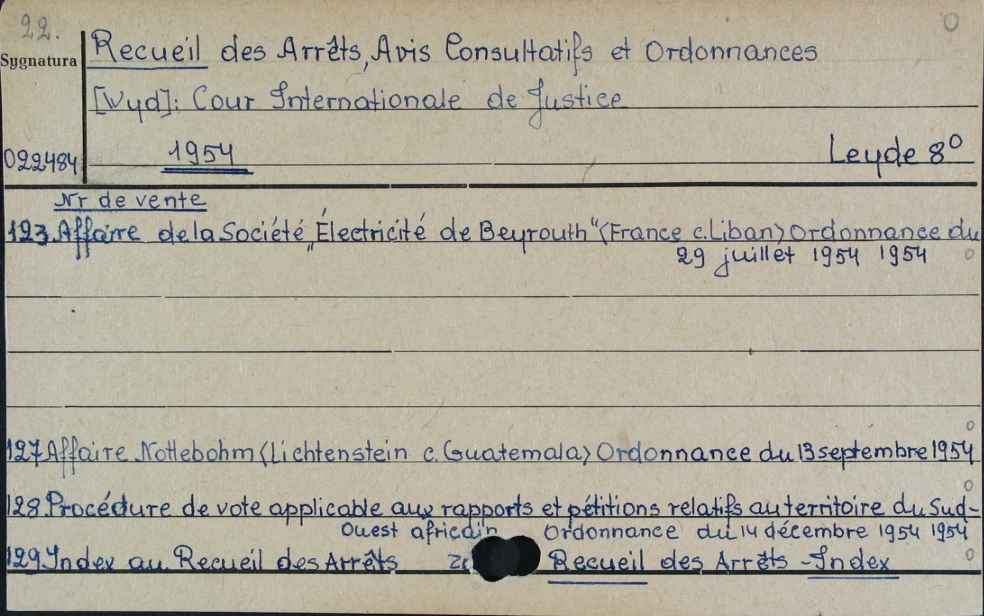 22.
O
Sygnatura
Recueil des Arrêts, Avis Consultatifs et Ordonnances
[Wyd]: Cour Internationale de Justice
022484 1954 Leyde 8°
Nr de vente
123 Affaire de la Société „Électricité de Beyrouth" <France c. Liban> Ordonnance du
29 juillet 1954 1954 o
o
127 Affaire Nottebohm <Lichtenstein c. Guatemala> Ordonnance du 13 septembre 1954
o
128 Procédure de vote applicable aux rapports et pétitions relatifs au territoire du Sud-
Ouest africain Ordonnance du 14 décembre 1954 1954
129 Index au Recueil des Arrêts Recueil des Arrêts - Index o